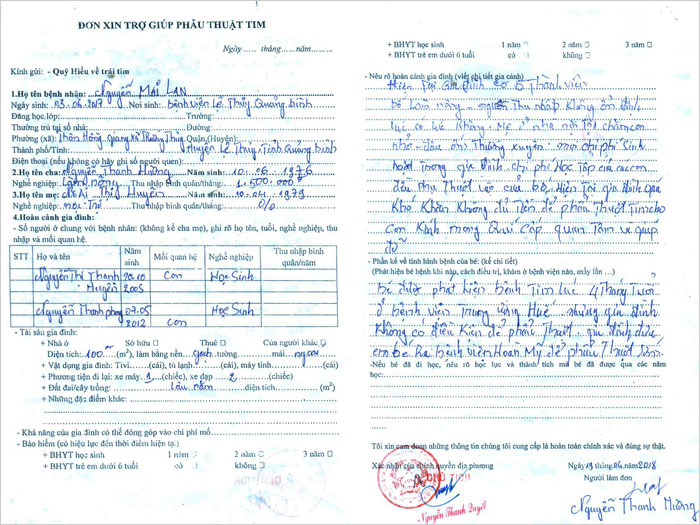 ĐƠN XIN TRỢ GIÚP PHẪU THUẬT TIM
Ngày ..... tháng......năm.........
Kính gửi: - Quỹ Hiểu về trái tim
1.Họ tên bệnh nhân: Nguyễn MAI LAN
Ngày sinh: 03.06.2017 Nơi sinh: bệnh viện Lệ Thủy Quảng bình
Đang học lớp: Trường:
Thường trú tại số nhà: Đường:
Phường (xã): Thôn Hồng Giang xã Trường Thủy Quận (Huyện):
Thành phố/Tỉnh: Huyện Lệ Thủy Tỉnh Quảng bình
Điện thoại (nếu không có hãy ghi số người quen):
2.Họ tên cha: Nguyễn Thanh Mường Năm sinh: 10.06.1976
Nghề nghiệp: Làm nông Thu nhập bình quân/tháng: 1.500.000đ
3.Họ tên mẹ: Thị Huyền Năm sinh: 10.04.1979
Nghề nghiệp: nội Trợ Thu nhập bình quân/tháng: 0/0
4.Hoàn cảnh gia đình:
- Số người ở chung với bệnh nhân: (không kể cha, mẹ), ghi rõ họ tên, tuổi, nghề nghiệp, thu nhập và mối quan hệ:
STT Họ và tên Năm sinh Mối quan hệ Nghề nghiệp Thu nhập bình quân/năm
Nguyễn Thị Thanh 20.10 Con Học Sinh
Huyền 2005
Nguyễn Thanh phong 07.05 Học Sinh
2012 Con
- Tài sản gia đình:
+ Nhà ở Sở hữu □ Thuê □ Của người khác
Diện tích: 100 (m²), làm bằng nền gạch tường mái ngói
+ Vật dụng gia đình: Tivi (cái), tủ lạnh (cái), máy tính (cái)
+ Phương tiện đi lại: xe máy 1 (chiếc), xe đạp 2 (chiếc)
+ Đất đai/cây trồng: Lâu năm diện tích (m²)
+ Những đặc điểm khác:
- Khả năng của gia đình có thể đóng góp vào chi phí mổ
- Bảo hiểm (có hiệu lực đến thời điểm hiện tại.)
+ BHYT học sinh 1 năm □ 2 năm □ 3 năm □
+ BHYT trẻ em dưới 6 tuổi có □ không □
+ BHYT học sinh 1 năm □ 2 năm □ 3 năm □
+ BHYT trẻ em dưới 6 tuổi có □ không □
- Nêu rõ hoàn cảnh gia đình (viết chi tiết gia cảnh)
Hiện Tại Gia đình có 5 Thành viên
bố Làm nông nguồn Thu nhập Không ổn định
lúc có lúc Không. Mẹ ở nhà nội Trợ chăm con
nhỏ đau ốm Thường xuyên mọi chi phí Sinh
hoạt Trong gia đình chi phí Học Tập của các con
đều phụ Thuộc vào bố, Hiện Tại gia đình quá
Khó Khăn Không đủ Tiền để phẩu Thuật Tim cho
Con Kính mong Quí Cấp quan Tâm và giúp
đỡ
- Phần kể về tình hình bệnh của bé: (kể chi tiết)
(Phát hiện bé bệnh khi nào, cách điều trị, khám ở bệnh viện nào, mấy lần ...)
bé được phát hiện bệnh Tim lúc 4 Tháng Tuổi
ở bệnh viện Trung ương Huế nhưng gia đình
Không có điều Kiện để phẩu Thuật. gia đình đưa
em bé Ra bệnh viện Hoàn Mỹ để phẩu Thuật
-Nếu bé đã đi học, nêu rõ học lực và thành tích mà bé đã được qua các năm học:
Tôi xin cam đoan những thông tin chúng tôi cung cấp là hoàn toàn chính xác và đúng sự thật.
Xác nhận của chính quyền địa phương Ngày 19 tháng 04 năm 2018
CHỦ TỊCH Người làm đơn
Nguyễn Thanh Duyệt Nguyễn Thanh Mường